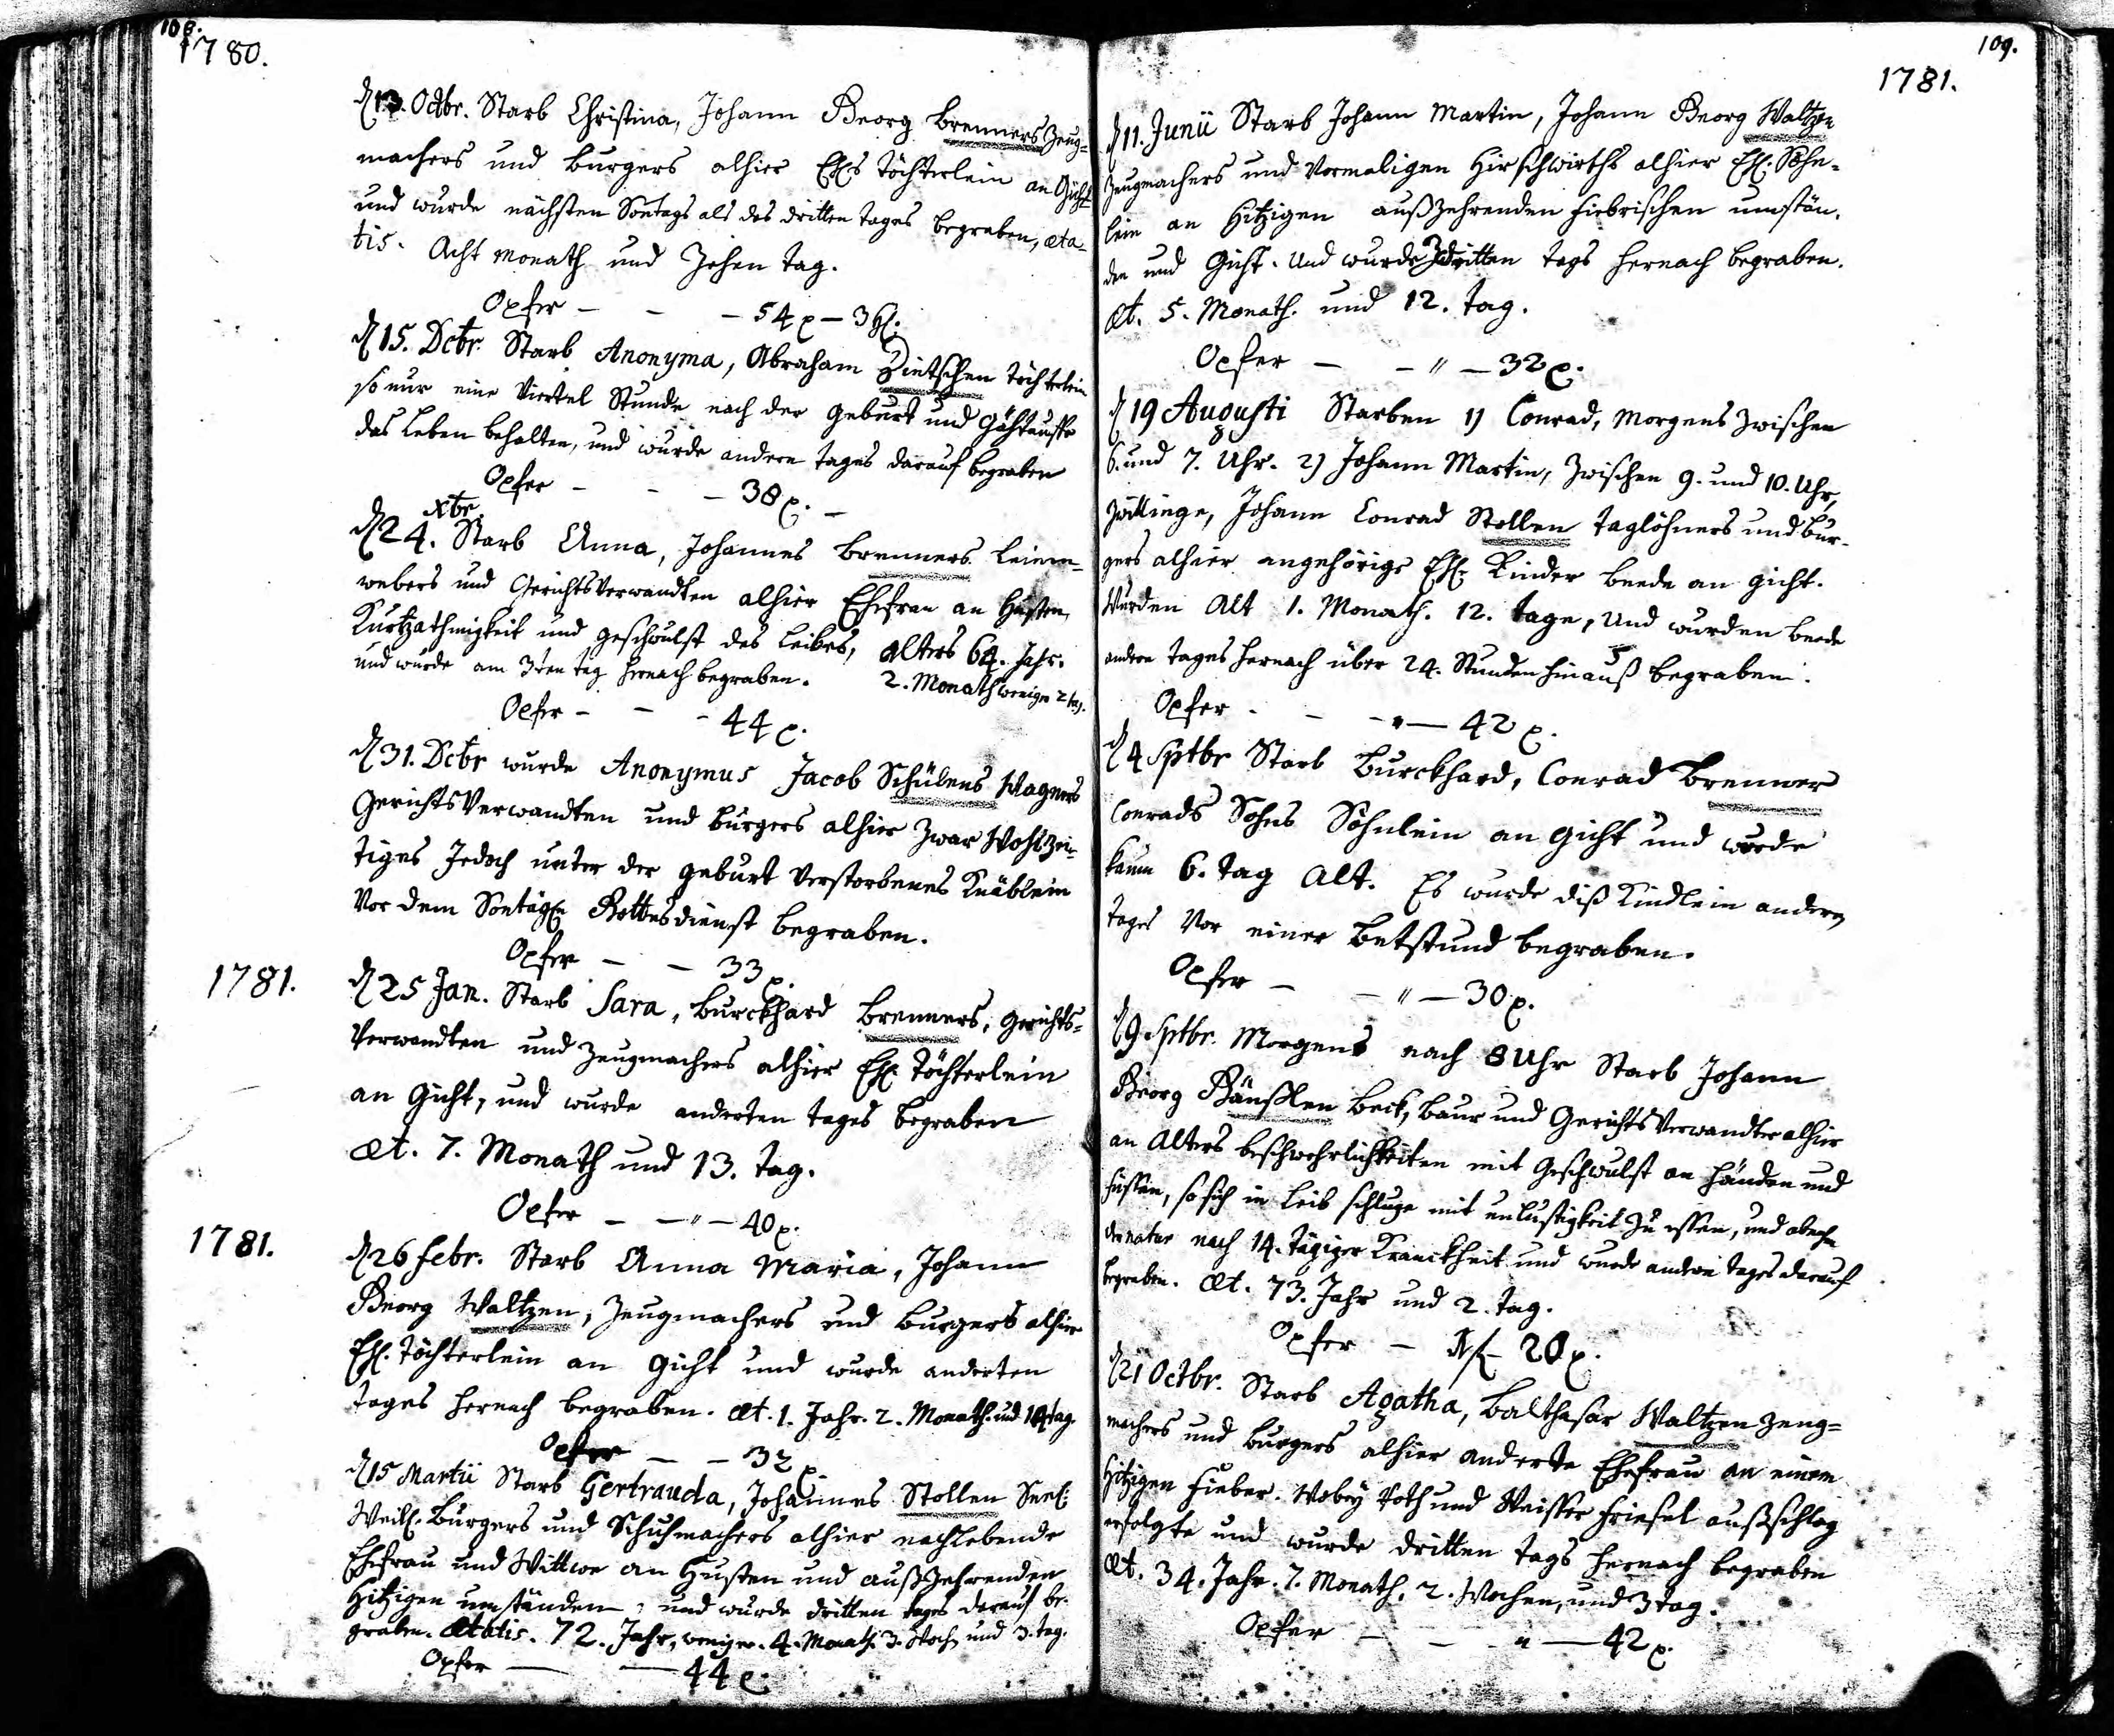 108.
1780.
d 13. Octbr. Starb Christina, Johann Georg Brenners Zeug=
machers und Burgers alhier Ehl. Töchterlein an Gicht
und wurde nächsten Sontags als des dritten tages begraben, æta-
tis. Acht Monath und Zehen tag.
Opfer – – – 54 x – 3 hl.
d 15. Dcbr. Starb Anonyma, Abraham Dietschen Töchterlein
so nur eine Viertel Stunde nach der geburt und Gähtauffe
das Leben behalten, und wurde andern tages darauf begraben
Opfer – – – 38 x. –
xbr.
d 24. Starb Anna, Johannes Brenners Leinen-
webers und Gerichts Verwandten alhier Ehefrau an Husten,
Kurtzathmigkeit und geschwulst des Leibes, alters 64. Jahr.
und wurde am 3ten tag hernach begraben. 2. Monath weniger 2 tag.
Opfer – – – 44 x.
d 31. Dcbr wurde Anonymus Jacob Schülens Wagners
Gerichts Verwandten und Burgers alhier Zwar Wohl Zei-
tiges Jedoch unter der geburt verstorbenes Knäblein
Vor dem Sontägl. Gottesdienst begraben.
Opfer – – 33 x.
1781.
d 25 Jan. Starb Sara, Burckhard Brenners, Gerichts=
Verwandten und Zeugmachers alhier Ehl. Töchterlein
an Gicht, und wurde anderten tages begraben
æt. 7. Monath und 13. tag.
Opfer – – " – 40 x.
1781.
d 26 Febr. Starb Anna Maria, Johann
Georg Waltzen, Zeugmachers und Burgers alhier
Ehl. Töchterlein an Gicht und wurde anderten
tages hernach begraben. æt. 1. Jahr. 2. Monath. und 14 tag.
Opfer – – 32 x.
d 15 Martii Starb Gertrauda, Johannes Stollen Seel.
Weil. Burgers und Schuhmachers alhier nachlebende
Ehefrau und Wittwe an Husten und außzehrenden
Hitzigen umständen, und wurde dritten tages darauf be-
graben. Ætatis. 72. Jahr, weniger. 4. Monath. 3. Woch. und 3. tag.
Opfer – – 44 x.
109.
1781.
d 11. Junii Starb Johann Martin, Johann Georg Waltzen
Zeugmachers und Vormaligen Hirschwirths alhier Ehl. Söhn-
lein an Hitzigen außzehrenden fiebrischen umstän-
den und Gicht. Und wurde dritten tags hernach begraben.
æt. 5. Monath. und 12. tag.
Opfer – – " – 32 x.
d 19 Augusti Starben 1) Conrad, Morgens Zwischen
6. und 7. Uhr. 2) Johann Martin, Zwischen 9. und 10. Uhr,
Zwillinge, Johann Conrad Stollen Taglöhners und Bur-
gers alhier angehörige Ehl. Kinder beede an Gicht.
Wurden Alt 1. Monath. 12. tage, Und wurden beede
andern tages hernach über 24. Stunden hinauß begraben.
Opfer – – " – 42 x.
d 4 Sptbr Starb Burckhard, Conrad Brenner
Conrads Sohns Söhnlein an Gicht und wurde
kaum 6. tag Alt. Es wurde diß Kindlein andern
tages Vor einer Betstund begraben.
Opfer – – " – 30 x.
d 9 Sptbr. Morgens nach 8 Uhr Starb Johann
Georg Bäußlen Beck, Baur und Gerichts Verwandter alhier
an Alters beschwehrlichkeiten mit Geschwulst an Händen und
Füssen, so sich in Leib schluge mit unlustigkeit Zu essen, und abnahm
der natur nach 14. tägiger Kranckheit und wurde andern tages darauf
begraben. æt. 73. Jahr und 2. tag.
Opfer – 1 f – 20 x.
d 21 Octbr. Starb Agatha, Balthasar Waltzen Zeug=
machers und Burgers alhier anderte Ehefrau an einem
Hitzigen Fieber. Wobey Roth und Weisser friesel außschlag
erfolgte und wurde dritten tags hernach begraben
æt. 34. Jahr. 7. Monath. 2. Wochen, und 3 tag.
Opfer – – – " – 42 x.